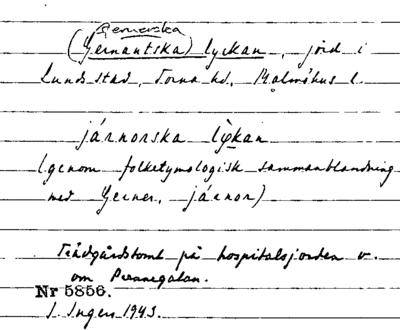 Gernerska
(Gernantska) lyckan, jord i
Lunds stad, Torna hd, Malmöhus l.
járnorska lykan
(genom folketymologisk sammanblandning
med Gerner, járnor)
Trädgårdstomt på hospitalsjorden v.
om Prennegatan.
Nr 5856.
I. Ingers 1943.